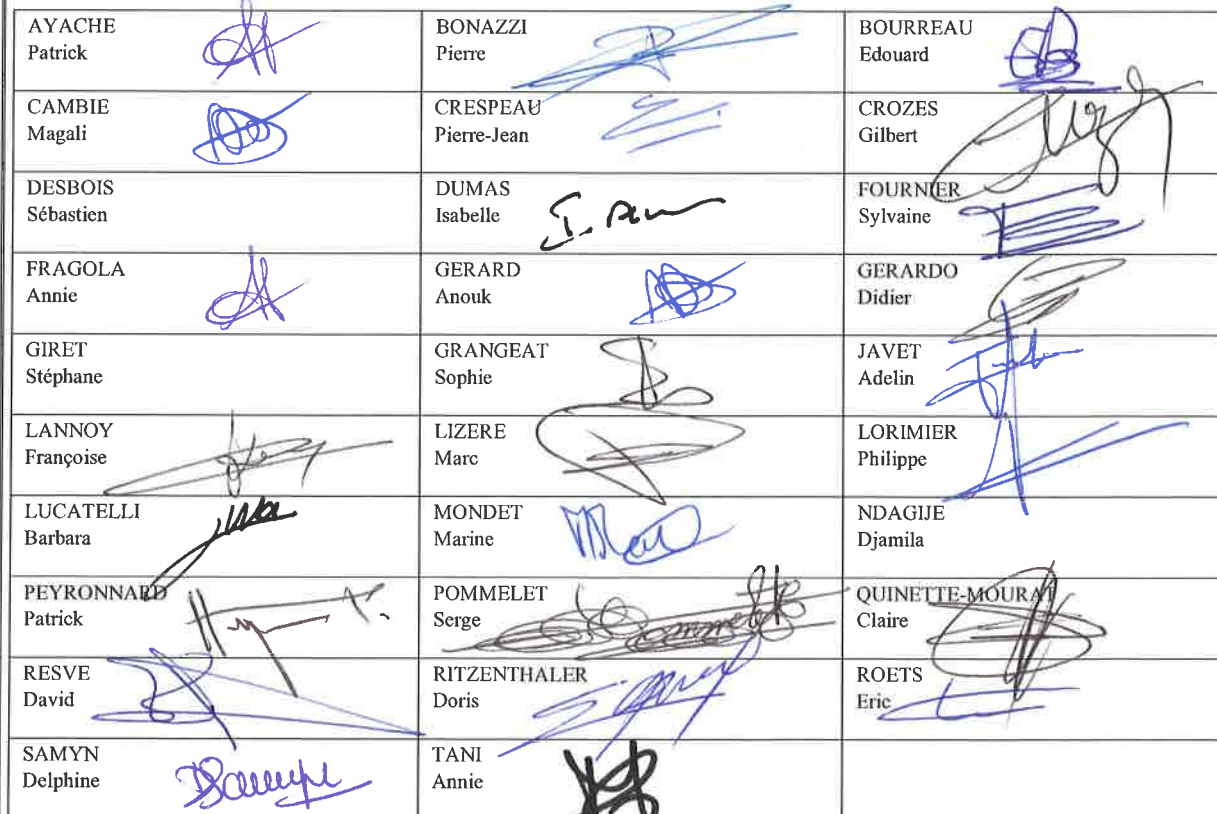 AYACHE
Patrick
BONAZZI
Pierre
BOURREAU
Edouard
CAMBIE
Magali
CRESPEAU
Pierre-Jean
CROZES
Gilbert
DESBOIS
Sébastien
DUMAS
Isabelle
FOURNIER
Sylvaine
FRAGOLA
Annie
GERARD
Anouk
GERARDO
Didier
GIRET
Stéphane
GRANGEAT
Sophie
JAVET
Adelin
LANNOY
Françoise
LIZERE
Marc
LORIMIER
Philippe
LUCATELLI
Barbara
MONDET
Marine
NDAGIJE
Djamila
PEYRONNARD
Patrick
POMMELET
Serge
QUINETTE-MOURAT
Claire
RESVE
David
RITZENTHALER
Doris
ROETS
Eric
SAMYN
Delphine
TANI
Annie